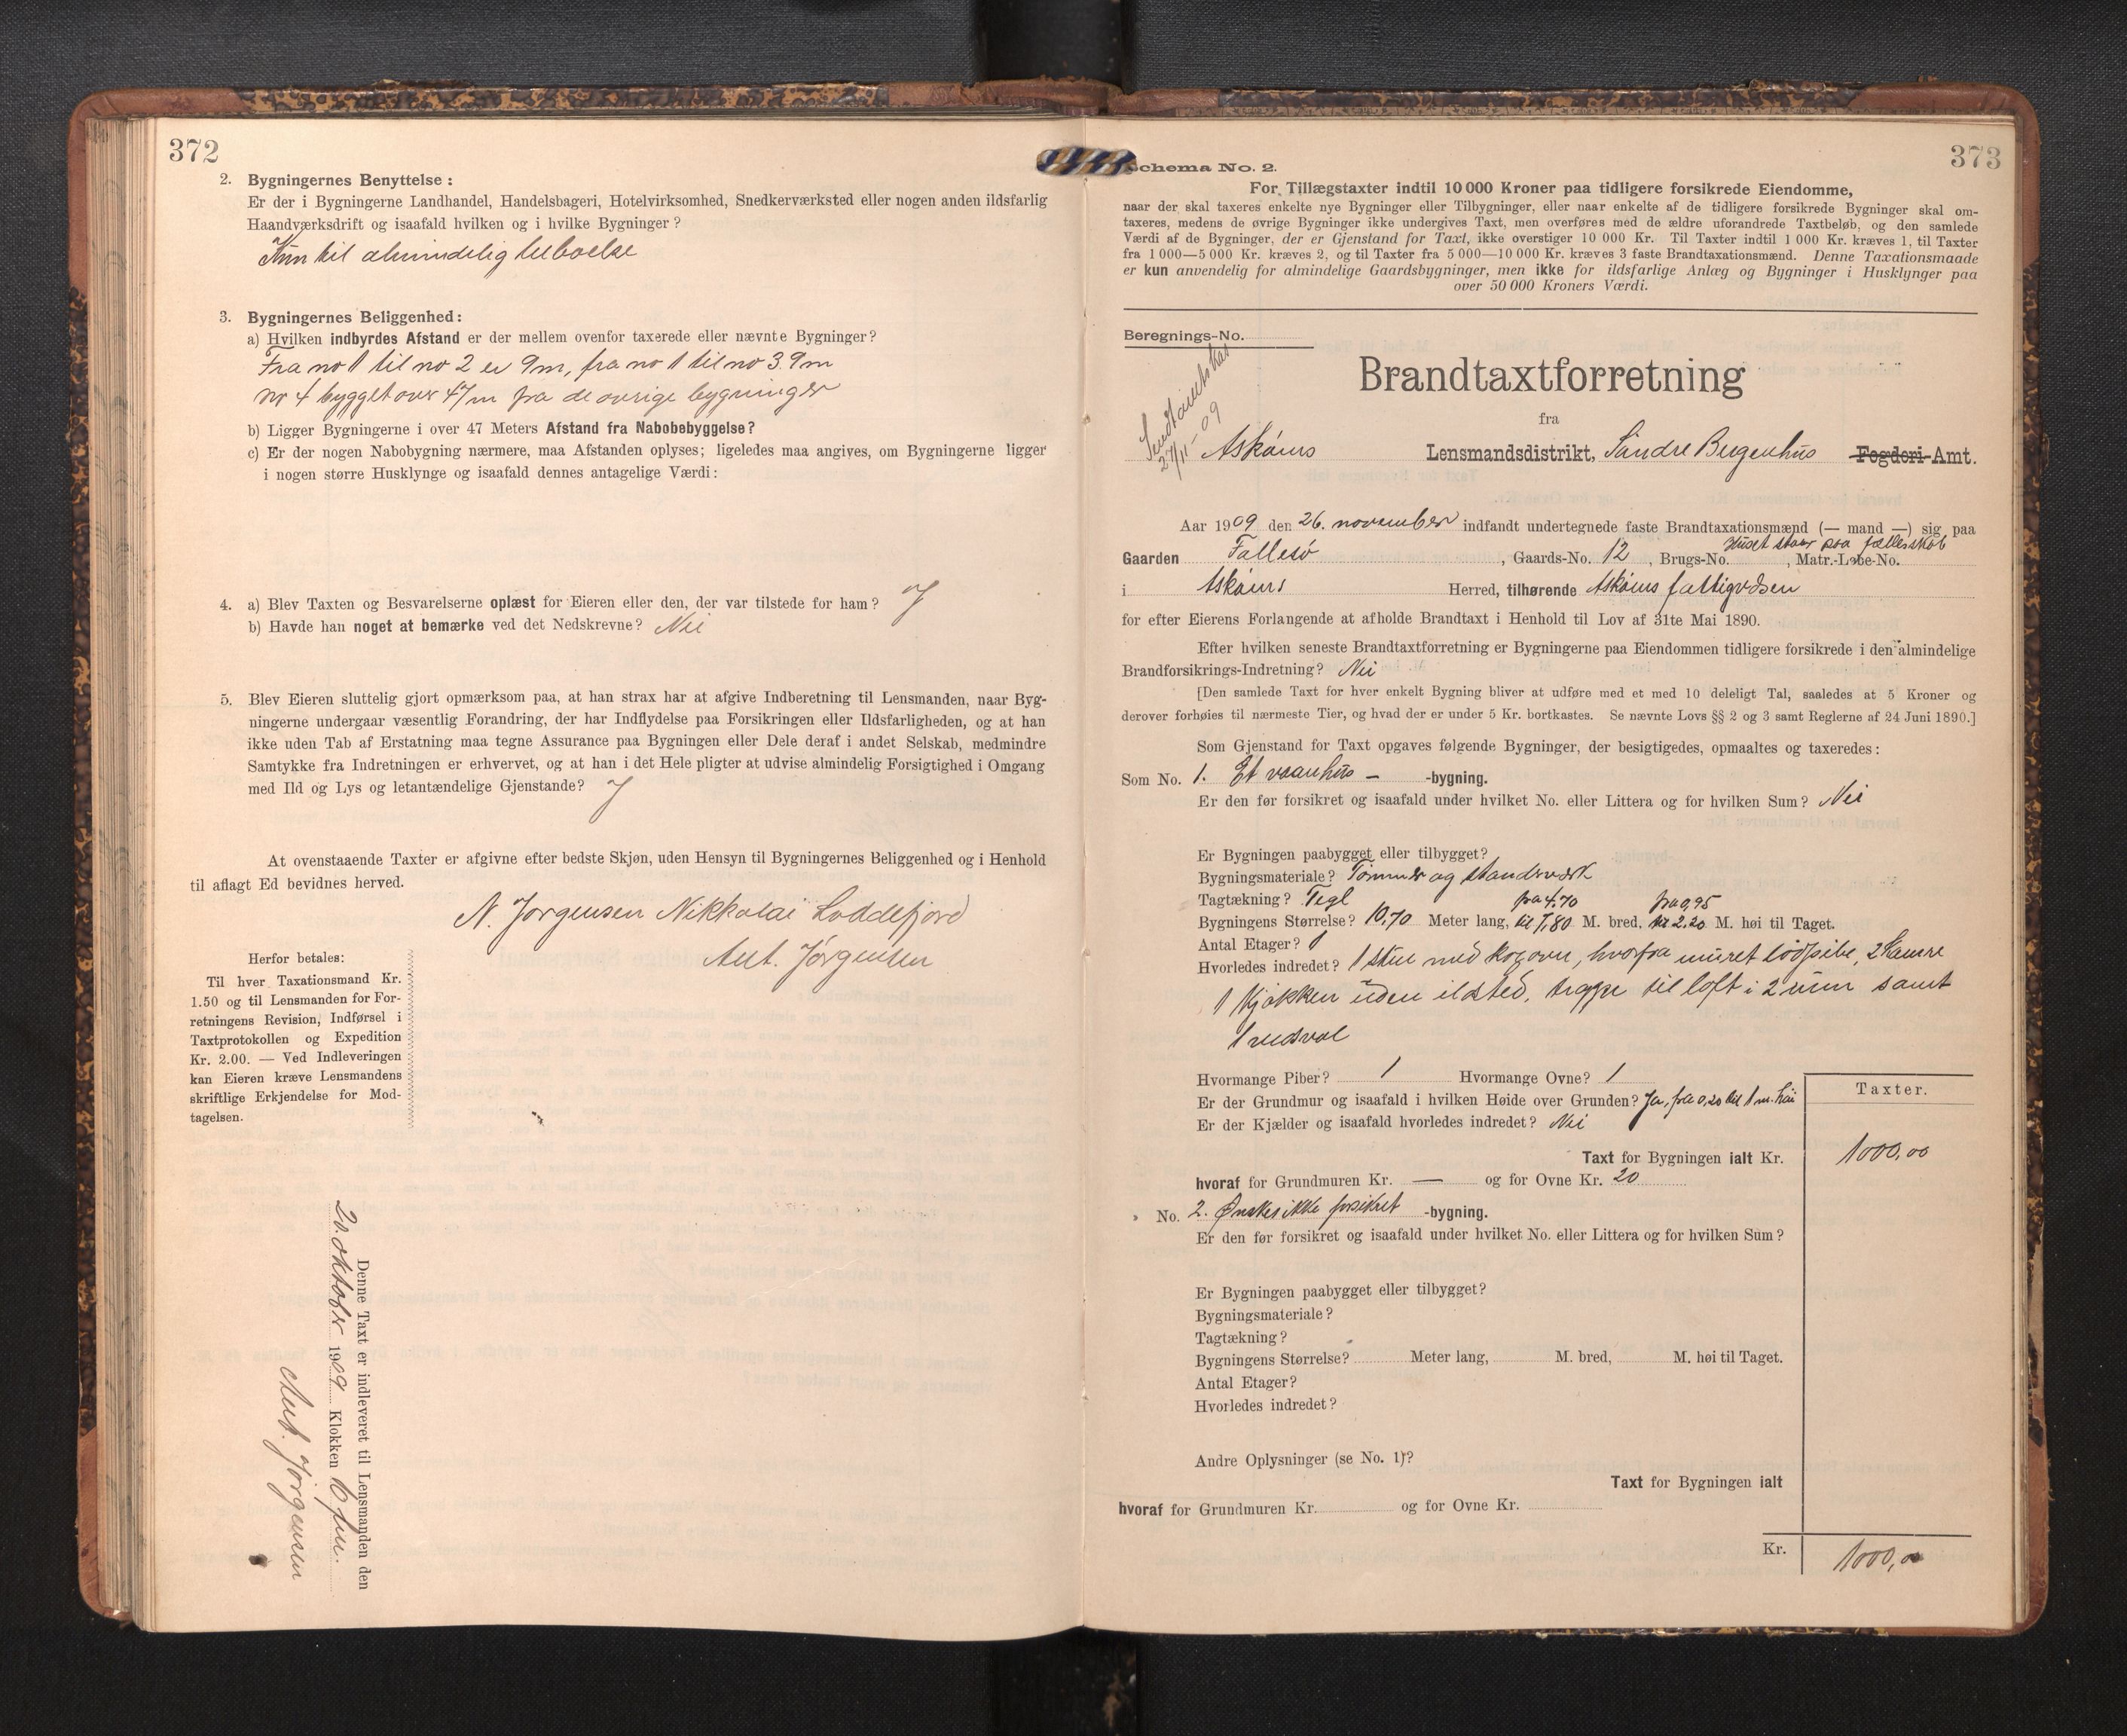 372
2. Bygningernes Benyttelse:
Er der i Bygningerne Landhandel, Handelsbageri, Hotelvirksomhed, Snedkerværksted eller nogen anden ildsfarlig
Haandværksdrift og isaafald hvilken og i hvilke Bygninger?
Kun til almindelig beboelse
3. Bygningernes Beliggenhed:
a) Hvilken indbyrdes Afstand er der mellem ovenfor taxerede eller nævnte Bygninger?
Fra no 1 til no 2 er 9m, fra no 1 til no 3. 9m
no 4 bygget over 47m fra de øvrige bygninger
b) Ligger Bygningerne i over 47 Meters Afstand fra Nabobebyggelse?
c) Er der nogen Nabobygning nærmere, maa Afstanden oplyses; ligeledes maa angives, om Bygningerne ligger
i nogen større Husklynge og isaafald dennes antagelige Værdi:
4. a) Blev Taxten og Besvarelserne oplæst for Eieren eller den, der var tilstede for ham? J
b) Havde han noget at bemærke ved det Nedskrevne? Nei
5. Blev Eieren sluttelig gjort opmærksom paa, at han strax har at afgive Indberetning til Lensmanden, naar Byg-
ningerne undergaar væsentlig Forandring, der har Indflydelse paa Forsikringen eller Ildsfarligheden, og at han
ikke uden Tab af Erstatning maa tegne Assurance paa Bygningen eller Dele deraf i andet Selskab, medmindre
Samtykke fra Indretningen er erhvervet, og at han i det Hele pligter at udvise almindelig Forsigtighed i Omgang
med Ild og Lys og letantændelige Gjenstande? J
At ovenstaaende Taxter er afgivne efter bedste Skjøn, uden Hensyn til Bygningernes Beliggenhed og i Henhold
til aflagt Ed bevidnes herved.
N. Jørgensen Nikkolai Loddefjord
Ant. Jørgensen
Herfor betales:
Til hver Taxationsmand Kr.
1.50 og til Lensmanden for For-
retningens Revision, Indførsel i
Taxtprotokollen og Expedition
Kr. 2.00. — Ved Indleveringen
kan Eieren kræve Lensmandens
skriftlige Erkjendelse for Mod-
tagelsen.
Denne Taxt er indleveret til Lensmanden den
20. oktober 1909 Klokken 6
Ant. Jørgensen
373
Schema No. 2.
For Tillægstaxter indtil 10 000 Kroner paa tidligere forsikrede Eiendomme,
naar der skal taxeres enkelte nye Bygninger eller Tilbygninger, eller naar enkelte af de tidligere forsikrede Bygninger skal om-
taxeres, medens de øvrige Bygninger ikke undergives Taxt, men overføres med de ældre uforandrede Taxtbeløb, og den samlede
Værdi af de Bygninger, der er Gjenstand for Taxt, ikke overstiger 10 000 Kr. Til Taxter indtil 1 000 Kr. kræves 1, til Taxter
fra 1 000—5 000 Kr. kræves 2, og til Taxter fra 5 000—10 000 Kr. kræves 3 faste Brandtaxationsmænd. Denne Taxationsmaade
er kun anvendelig for almindelige Gaardsbygninger, men ikke for ildsfarlige Anlæg og Bygninger i Husklynger paa
over 50 000 Kroners Værdi.
Beregnings-No.
27/11-09
Brandtaxtforretning
fra
Askøens Lensmandsdistrikt, Søndre Bergenhus Fogderi-Amt.
Aar 1909 den 26. november indfandt undertegnede faste Brandtaxationsmænd (— mand —) sig paa
Huset staar paa fælleskab
Gaarden Follesø, Gaards-No. 12, Brugs-No. , Matr.-Løbe-No.
i Askøens Herred, tilhørende Askøens fattigvæsen
for efter Eierens Forlangende at afholde Brandtaxt i Henhold til Lov af 31te Mai 1890.
Efter hvilken seneste Brandtaxtforretning er Bygningerne paa Eiendommen tidligere forsikrede i den almindelige
Brandforsikrings-Indretning? Nei
[Den samlede Taxt for hver enkelt Bygning bliver at udføre med et med 10 deleligt Tal, saaledes at 5 Kroner og
derover forhøies til nærmeste Tier, og hvad der er under 5 Kr. bortkastes. Se nævnte Lovs §§ 2 og 3 samt Reglerne af 24 Juni 1890.]
Som Gjenstand for Taxt opgaves følgende Bygninger, der besigtigedes, opmaaltes og taxeredes:
Som No. 1. Et vaanhus -bygning.
Er den før forsikret og isaafald under hvilket No. eller Littera og for hvilken Sum? Nei
Er Bygningen paabygget eller tilbygget?
Bygningsmateriale? Tømmer og standerværk
Tagtækning? Tegl fra 4.70 fra 0,95
Bygningens Størrelse? 10,70 Meter lang, til 7,80 M. bred, til 2.20 M. høi til Taget.
Antal Etager? 1
Hvorledes indredet? 1 stue med kogovn, hvorfra muret lødpibe, 2 kamre
1 kjøkken uden ildsted, trappe til loft i 2 rum samt
1 vedsval
Hvormange Piber? 1 Hvormange Ovne? 1
Er der Grundmur og isaafald i hvilken Høide over Grunden? Ja, fra 0,20 til 1 m. høi
Er der Kjælder og isaafald hvorledes indredet? Nei
Taxter.
Taxt for Bygningen ialt Kr. 1000,00
hvoraf for Grundmuren Kr. — og for Ovne Kr. 20
No. 2. Ønskes ikke forsikret -bygning.
Er den før forsikret og isaafald under hvilket No. eller Littera og for hvilken Sum?
Er Bygningen paabygget eller tilbygget?
Bygningsmateriale?
Tagtækning?
Bygningens Størrelse? Meter lang, M. bred, M. høi til Taget.
Antal Etager?
Hvorledes indredet?
Andre Oplysninger (se No. 1)?
Taxt for Bygningen ialt
hvoraf for Grundmuren Kr. og for Ovne Kr.
Kr. 1000,00